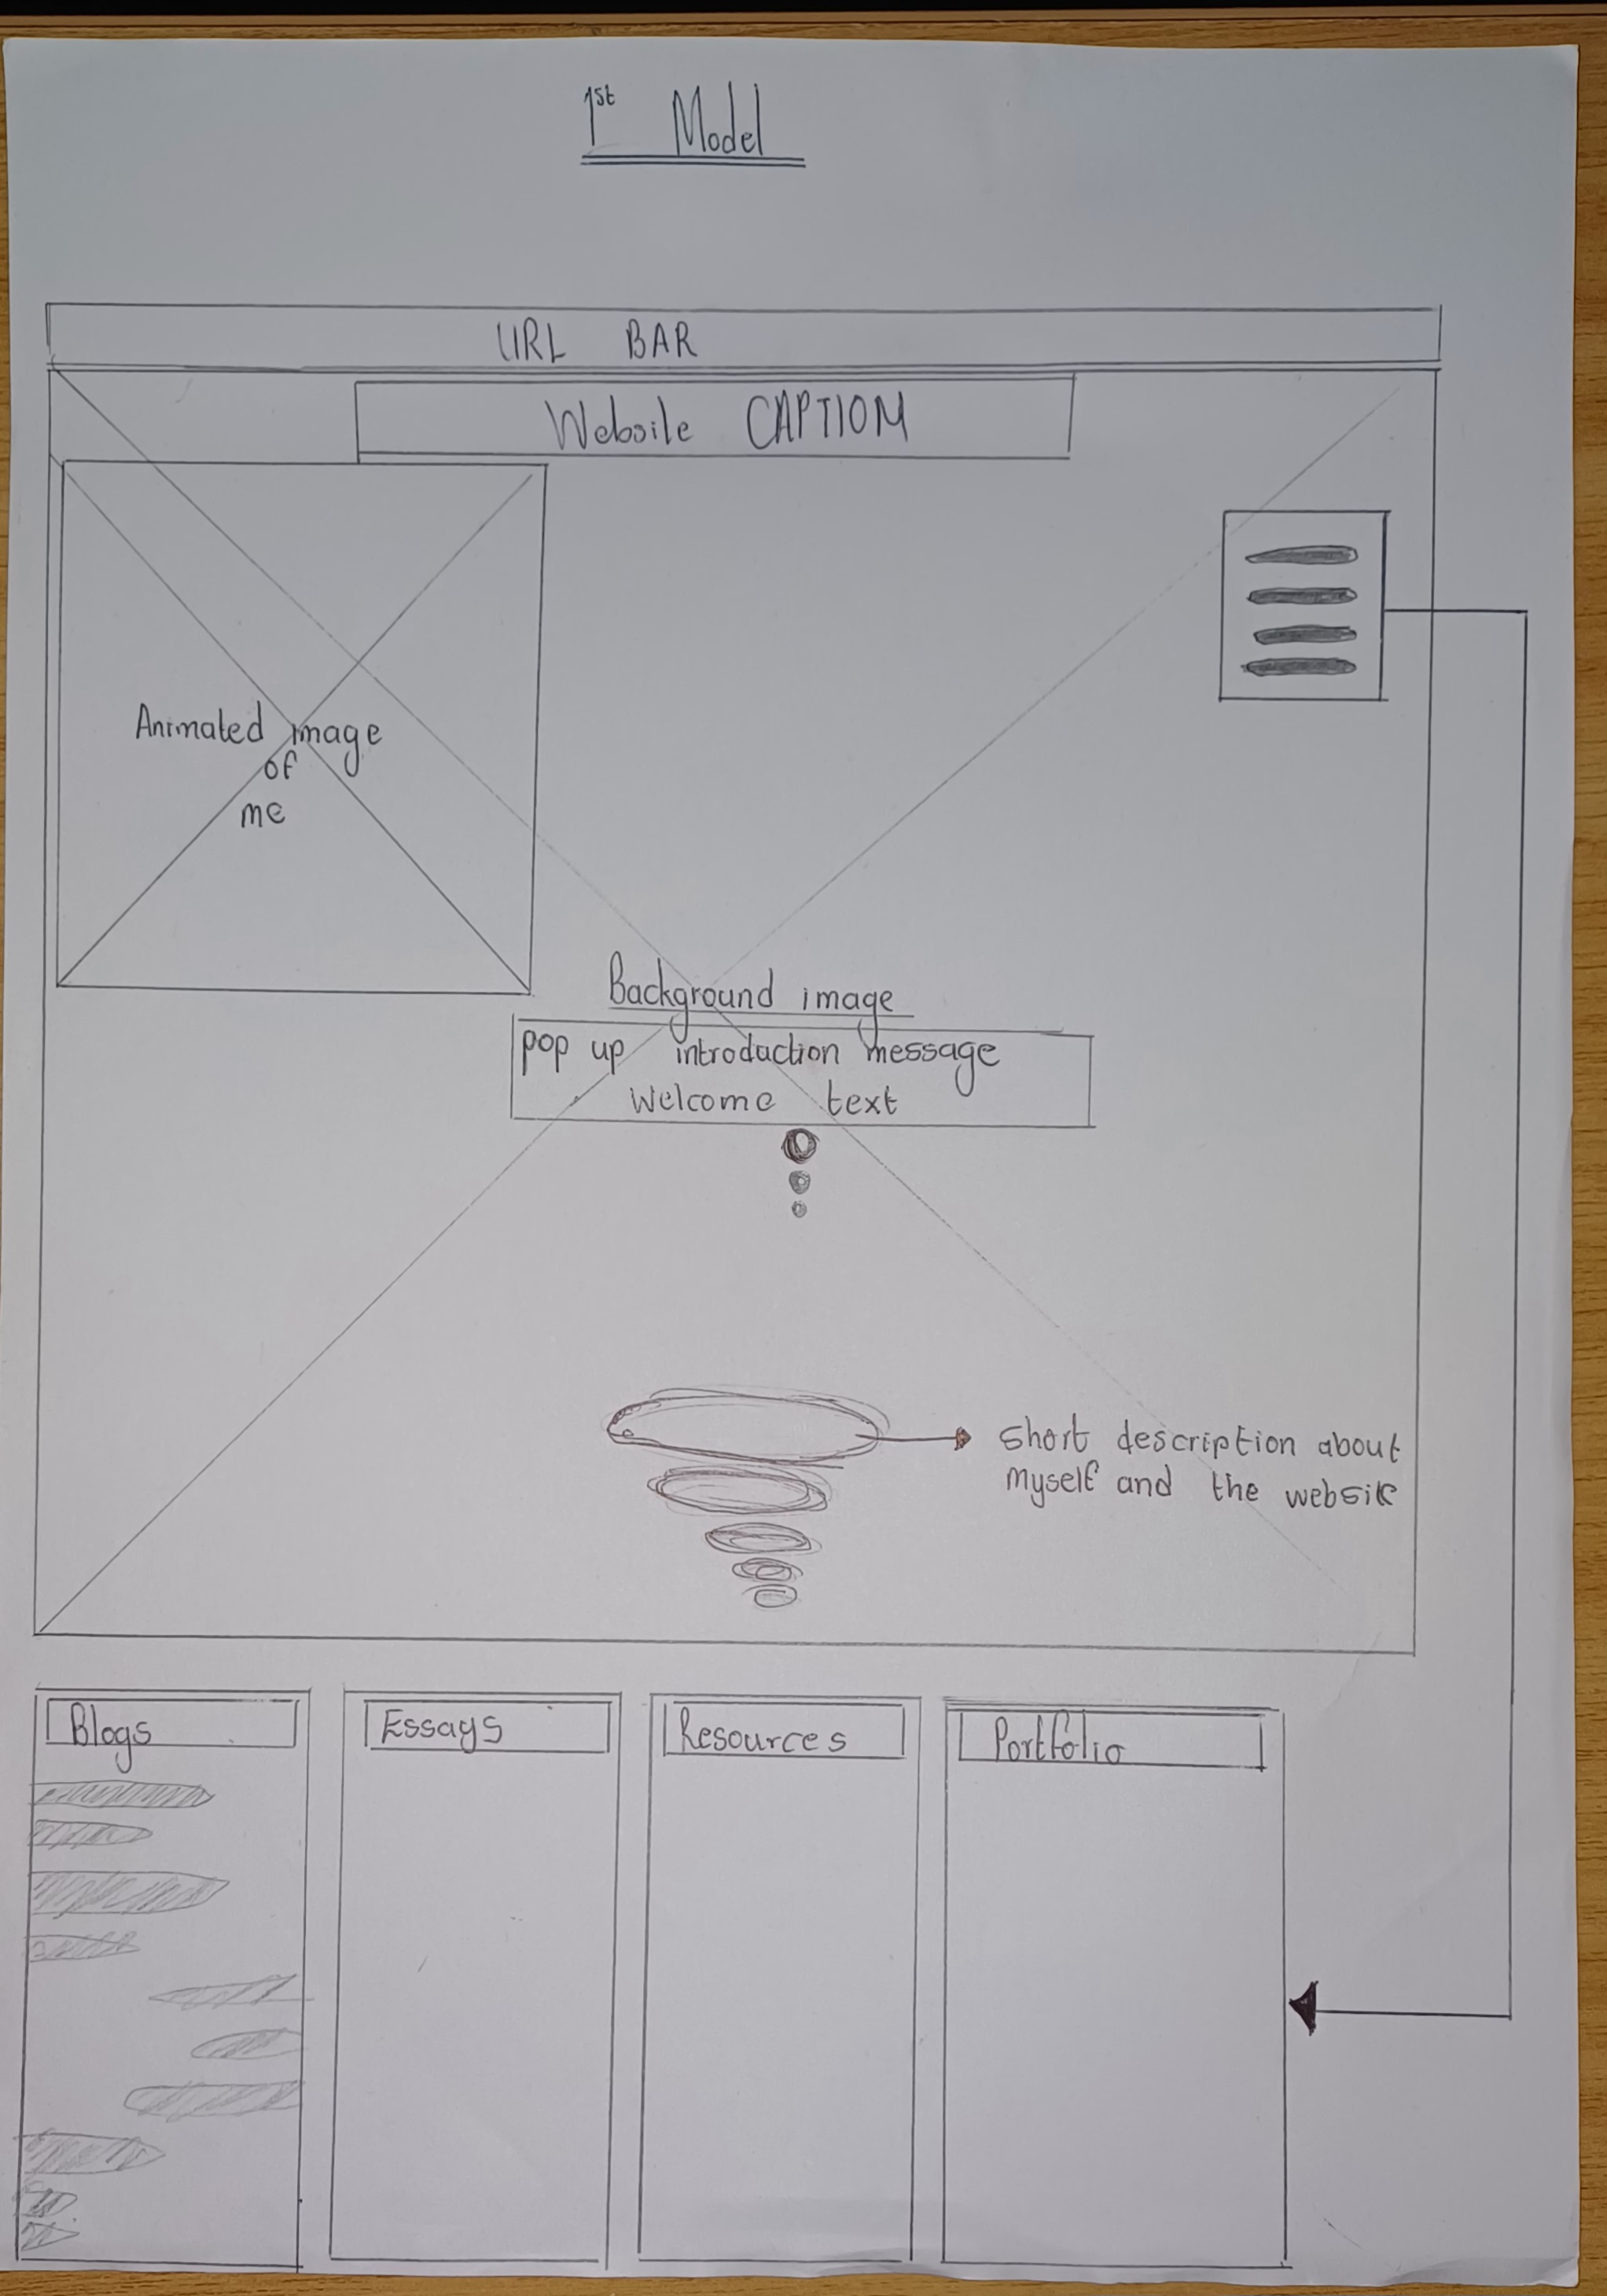 1st Model
URL BAR
Website CAPTIOM
Animated image
of
me
Background image
pop up introduction message
Welcome text
short description about
myself and the website
Blogs
Essays
Resources
Portfolio